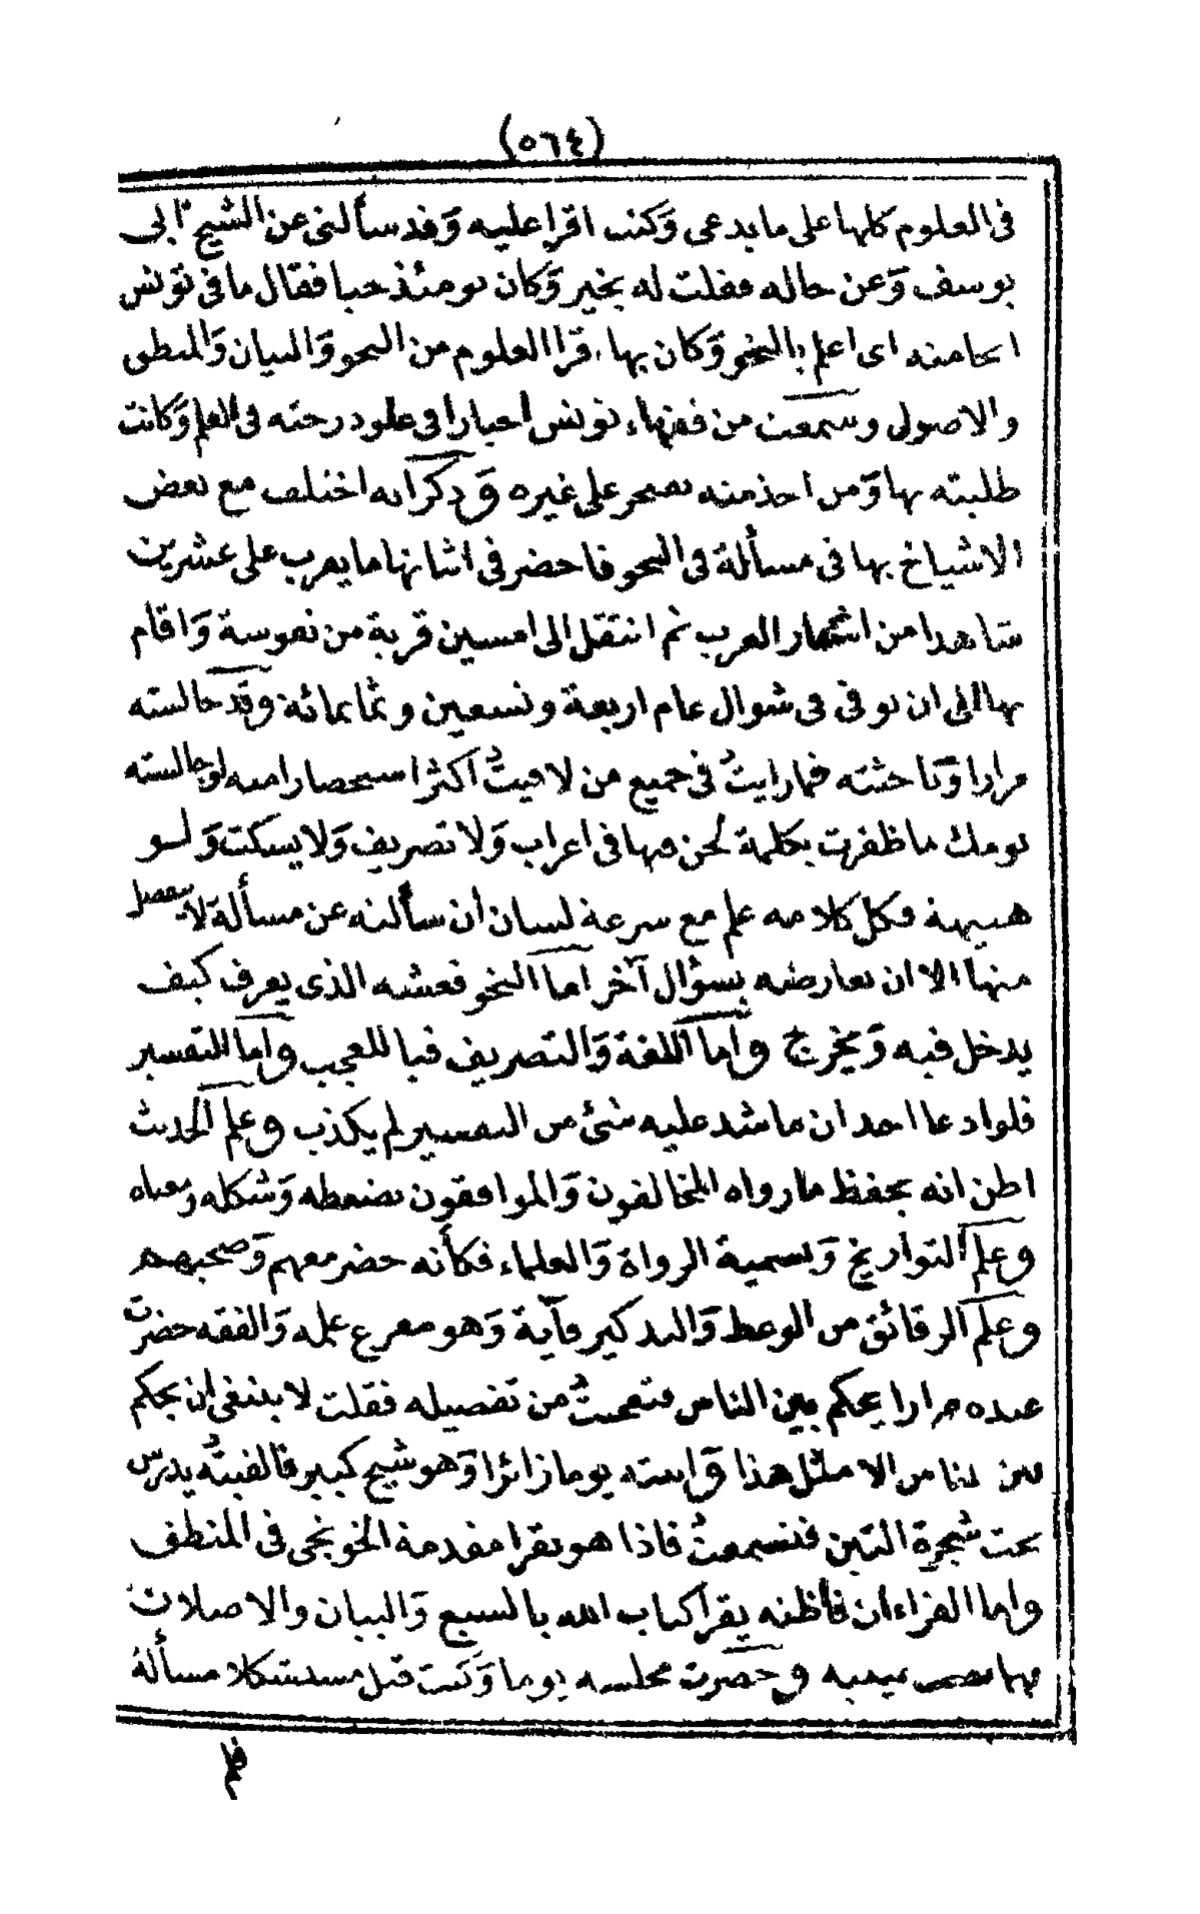 (٥٦٤)
في العلوم كلها على ما يدعى وكنت اقرا عليه وقد سألنى عن الشيخ ابى
يوسف وعن حاله فقلت له بخير وكان يومئذ حيا فقال ما فى تونس
انحا منه اى اعلم بالنحو وكان بها قرا العلوم من النحو والبيان والمنطق
والاصول وسمعت من فقهاء تونس اخبارا فى علو درجته فى العلم وكانت
طلبته بها ومن اخذ منه يفخر على غيره وذكر انه اختلف مع بعض
الاشياخ بها فى مسألة فى النحو فاحضر فى اثباتها ما يقرب على عشرين
شاهدا من اشعار العرب ثم انتقل الى امسين قرية من نفوسة واقام
بها الى ان توفى فى شوال عام اربعة وتسعين وثمانمائة وقد جالسته
مرارا وباحثته فما رايتُ فى جميع من لاقيتُ اكثر استحضارا منه لو جالسته
يومك ما ظفرت بكلمة لحن فيها فى اعراب ولا تصريف ولا يسكت ولو
هنيهة فكل كلامه علم مع سرعة لسان أن سألته عن مسألة لا ينفصل
منها الا ان تعارضه بسؤال آخر اما النحو فعشه الذى يعرف كيف
يدخل فيه ويخرج واما اللغة والتصريف فيا للعجب واما التفسير
فلو ادعا احد ان ما شد عليه شئ من التفسير لم يكذب وعلم الحديث
اظن انه يحفظ ما رواه المخالفون والموافقون بضبطه وشكله ومعناه
وعلم التواريخ وتسمية الرواة والعلماء فكأنه حضر معهم وصحبهم
وعلم الرقائق من الوعظ والتذكير فآية وهو مفرع علمه والفقه حضرت
عنده مرارا يحكم بين الناس فتعجبتُ من تفصيله فقلت لا ينبغى ان يحكم
بين الناس الا مثل هذا واتيته يوما زائرا وهو شيخ كبير فالفيتُه يدرس
تحت شجرة التين فتسمعتُ فاذا هو يقرا مقدمة الخونجى فى المنطق
واما القراءان فأظنه يقرأ كتاب الله بالسبع والبيان والاصلات
بها وحضرت مجلسه يوما وكنت قبل مستشكلا مسألة
فلم